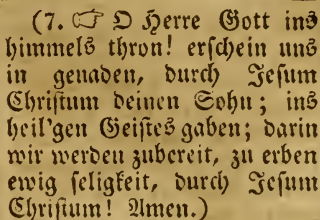 (7. ☞ O Herre Gott ins
himmels thron! erschein uns
in genaden, durch Jesum
Christum deinen Sohn; ins
heil'gen Geistes gaben; darin
wir werden zubereit, zu erben
ewig seligkeit, durch Jesum
Christum! Amen.)